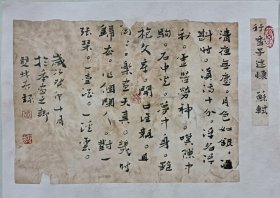 行香子述懷 蘇軾
清夜無塵。月色如銀。酒
斟時。須滿十分。浮名浮
利。虛苦勞神。嘆隙中
駒。石中火。夢中身。雖
抱文章。開口誰親。且
陶陶。樂盡天真。幾時
歸去。作個閒人。對一
張琴。一壺酒。一溪雲。
歲次癸卯十月